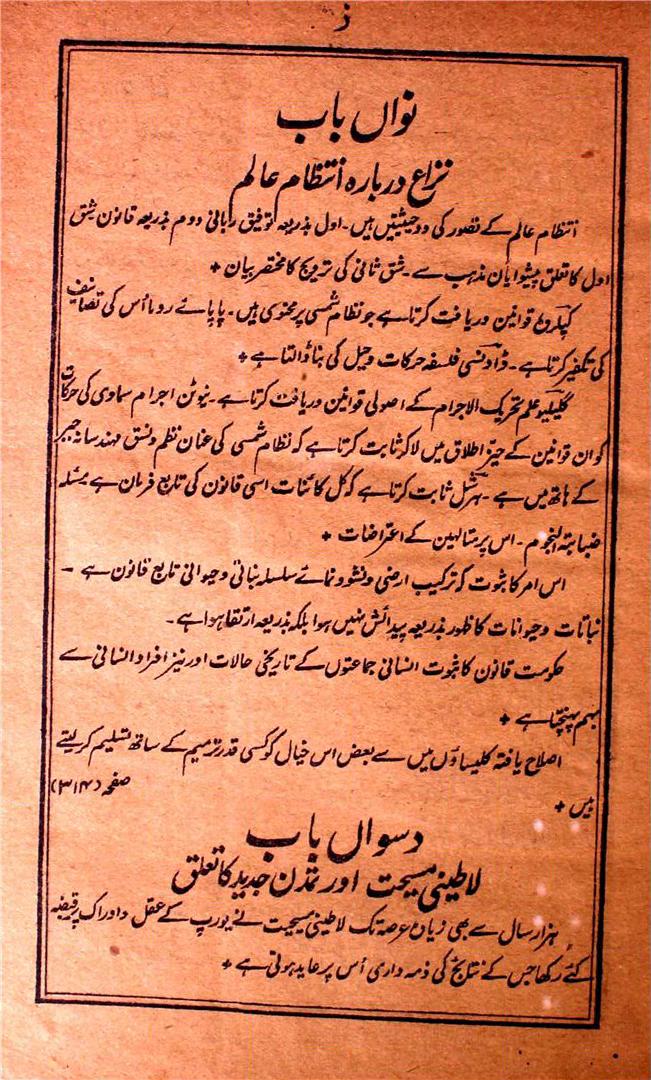 ز
نواں باب
نزاع دربارہ انتظام عالم
انتظام عالم کے تصور کی دو حیثیتیں ہیں۔ اول بذریعہ توفیق ربانی دوم بذریعہ قانون شق
اول کا تعلق پیشوایان مذہب سے ۔ شق ثانی کی ترویج کا مختصر بیان +
کپلر وہ قوانین دریافت کرتا ہے جو نظام شمسی پر محتوی ہیں۔ پاپائے روما اُس کی تصانیف
کی تکفیر کرتا ہے۔ ڈاونسی فلسفہ حرکات وحیل کی بنا ڈالتا ہے +
گلیلیو علم تحریک الاجرام کے اصولی قوانین دریافت کرتا ہے۔ نیوٹن اجرام سماوی کی حرکات
کو ان قوانین کے حیز اطلاق میں لا کر ثابت کرتا ہے کہ نظام شمسی کی عنان نظم ونسق مہندسانہ جبر
کے ہاتھ میں ہے ۔ ہرشل ثابت کرتا ہے کہ کل کائنات اسی قانون کی تابع فرمان ہے مسئلہ
ضبابتہ النجوم ۔ اس پر متالہین کے اعتراضات +
اس امر کا ثبوت کہ ترکیب ارضی ونشوونمائے سلسلہ نباتی وحیوانی تابع قانون ہے ۔
نباتات وحیوانات کا ظہور بذریعہ پیدائش نہیں ہوا بلکہ بذریعہ ارتقا ہوا ہے۔
حکومت قانون کا ثبوت انسانی جماعتوں کے تاریخی حالات اور نیز افراد انسانی سے
بہم پہنچتا ہے +
اصلاح یافتہ کلیساؤں میں سے بعض اس خیال کو کسی قدر ترمیم کے ساتھ تسلیم کر لیتے
ہیں + صفحہ (۳۱۴)
دسواں باب
لاطینی مسیحت اور تمدن جدید کا تعلق
ہزار سال سے بھی زیادہ عرصہ تک لاطینی مسیحیت نے یورپ کے عقل و ادراک پر قبضہ
کئے رکھا جس کے نتائج کی ذمہ داری اُس پر عاید ہوتی ہے +